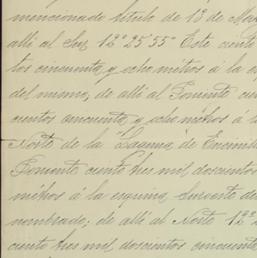 mencionado título de 13 de May
allí al Sur 12° 25' 55" Este ciento
tos cincuenta y ocho métros á la e
del mismo, de allí al Poniente cien
cientos cincuenta y ocho métros á l
Norte de la "Laguna de Encinil
Poniente ciento tres mil doscientos
métros á la esquina Suroeste de
nombrado; de allí al Norte 12° 2
ciento tres mil, doscientos cincuenta